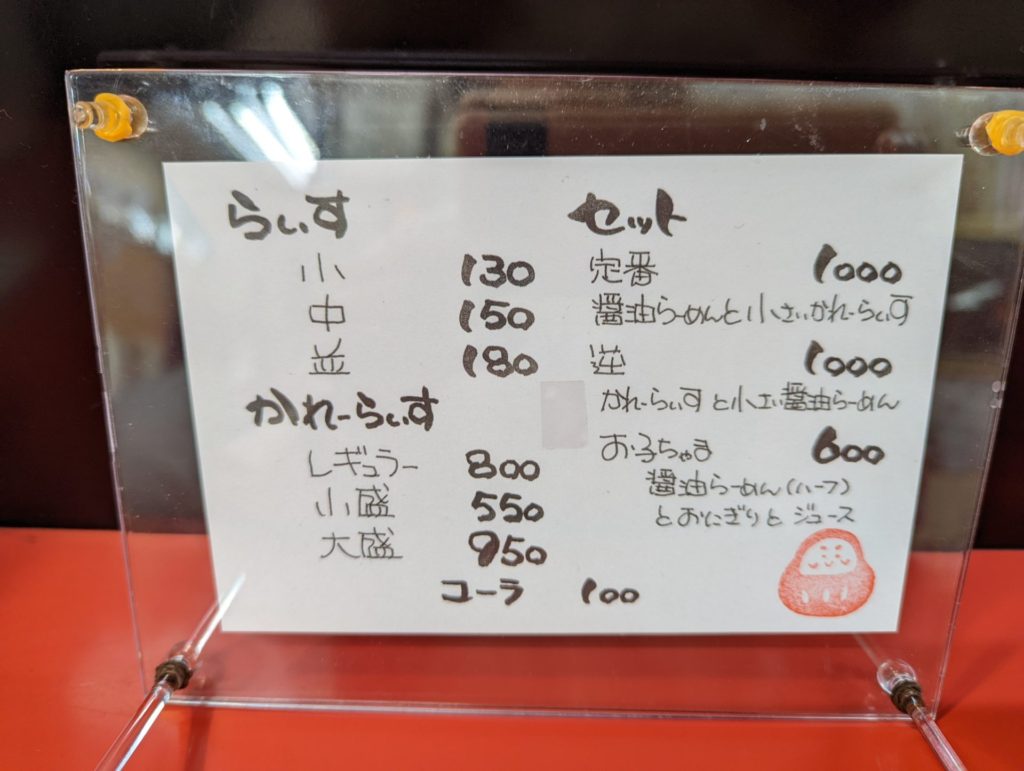 らいす
小 130
中 150
並 180
かれーらいす
レギュラー 800
小盛 550
大盛 950
コーラ 100
セット
定番 1000
醤油らーめんと小さいかれーらいす
逆 1000
かれーらいすと小さい醤油らーめん
お子ちゃま 600
醤油らーめん(ハーフ)
とおにぎりとジュース